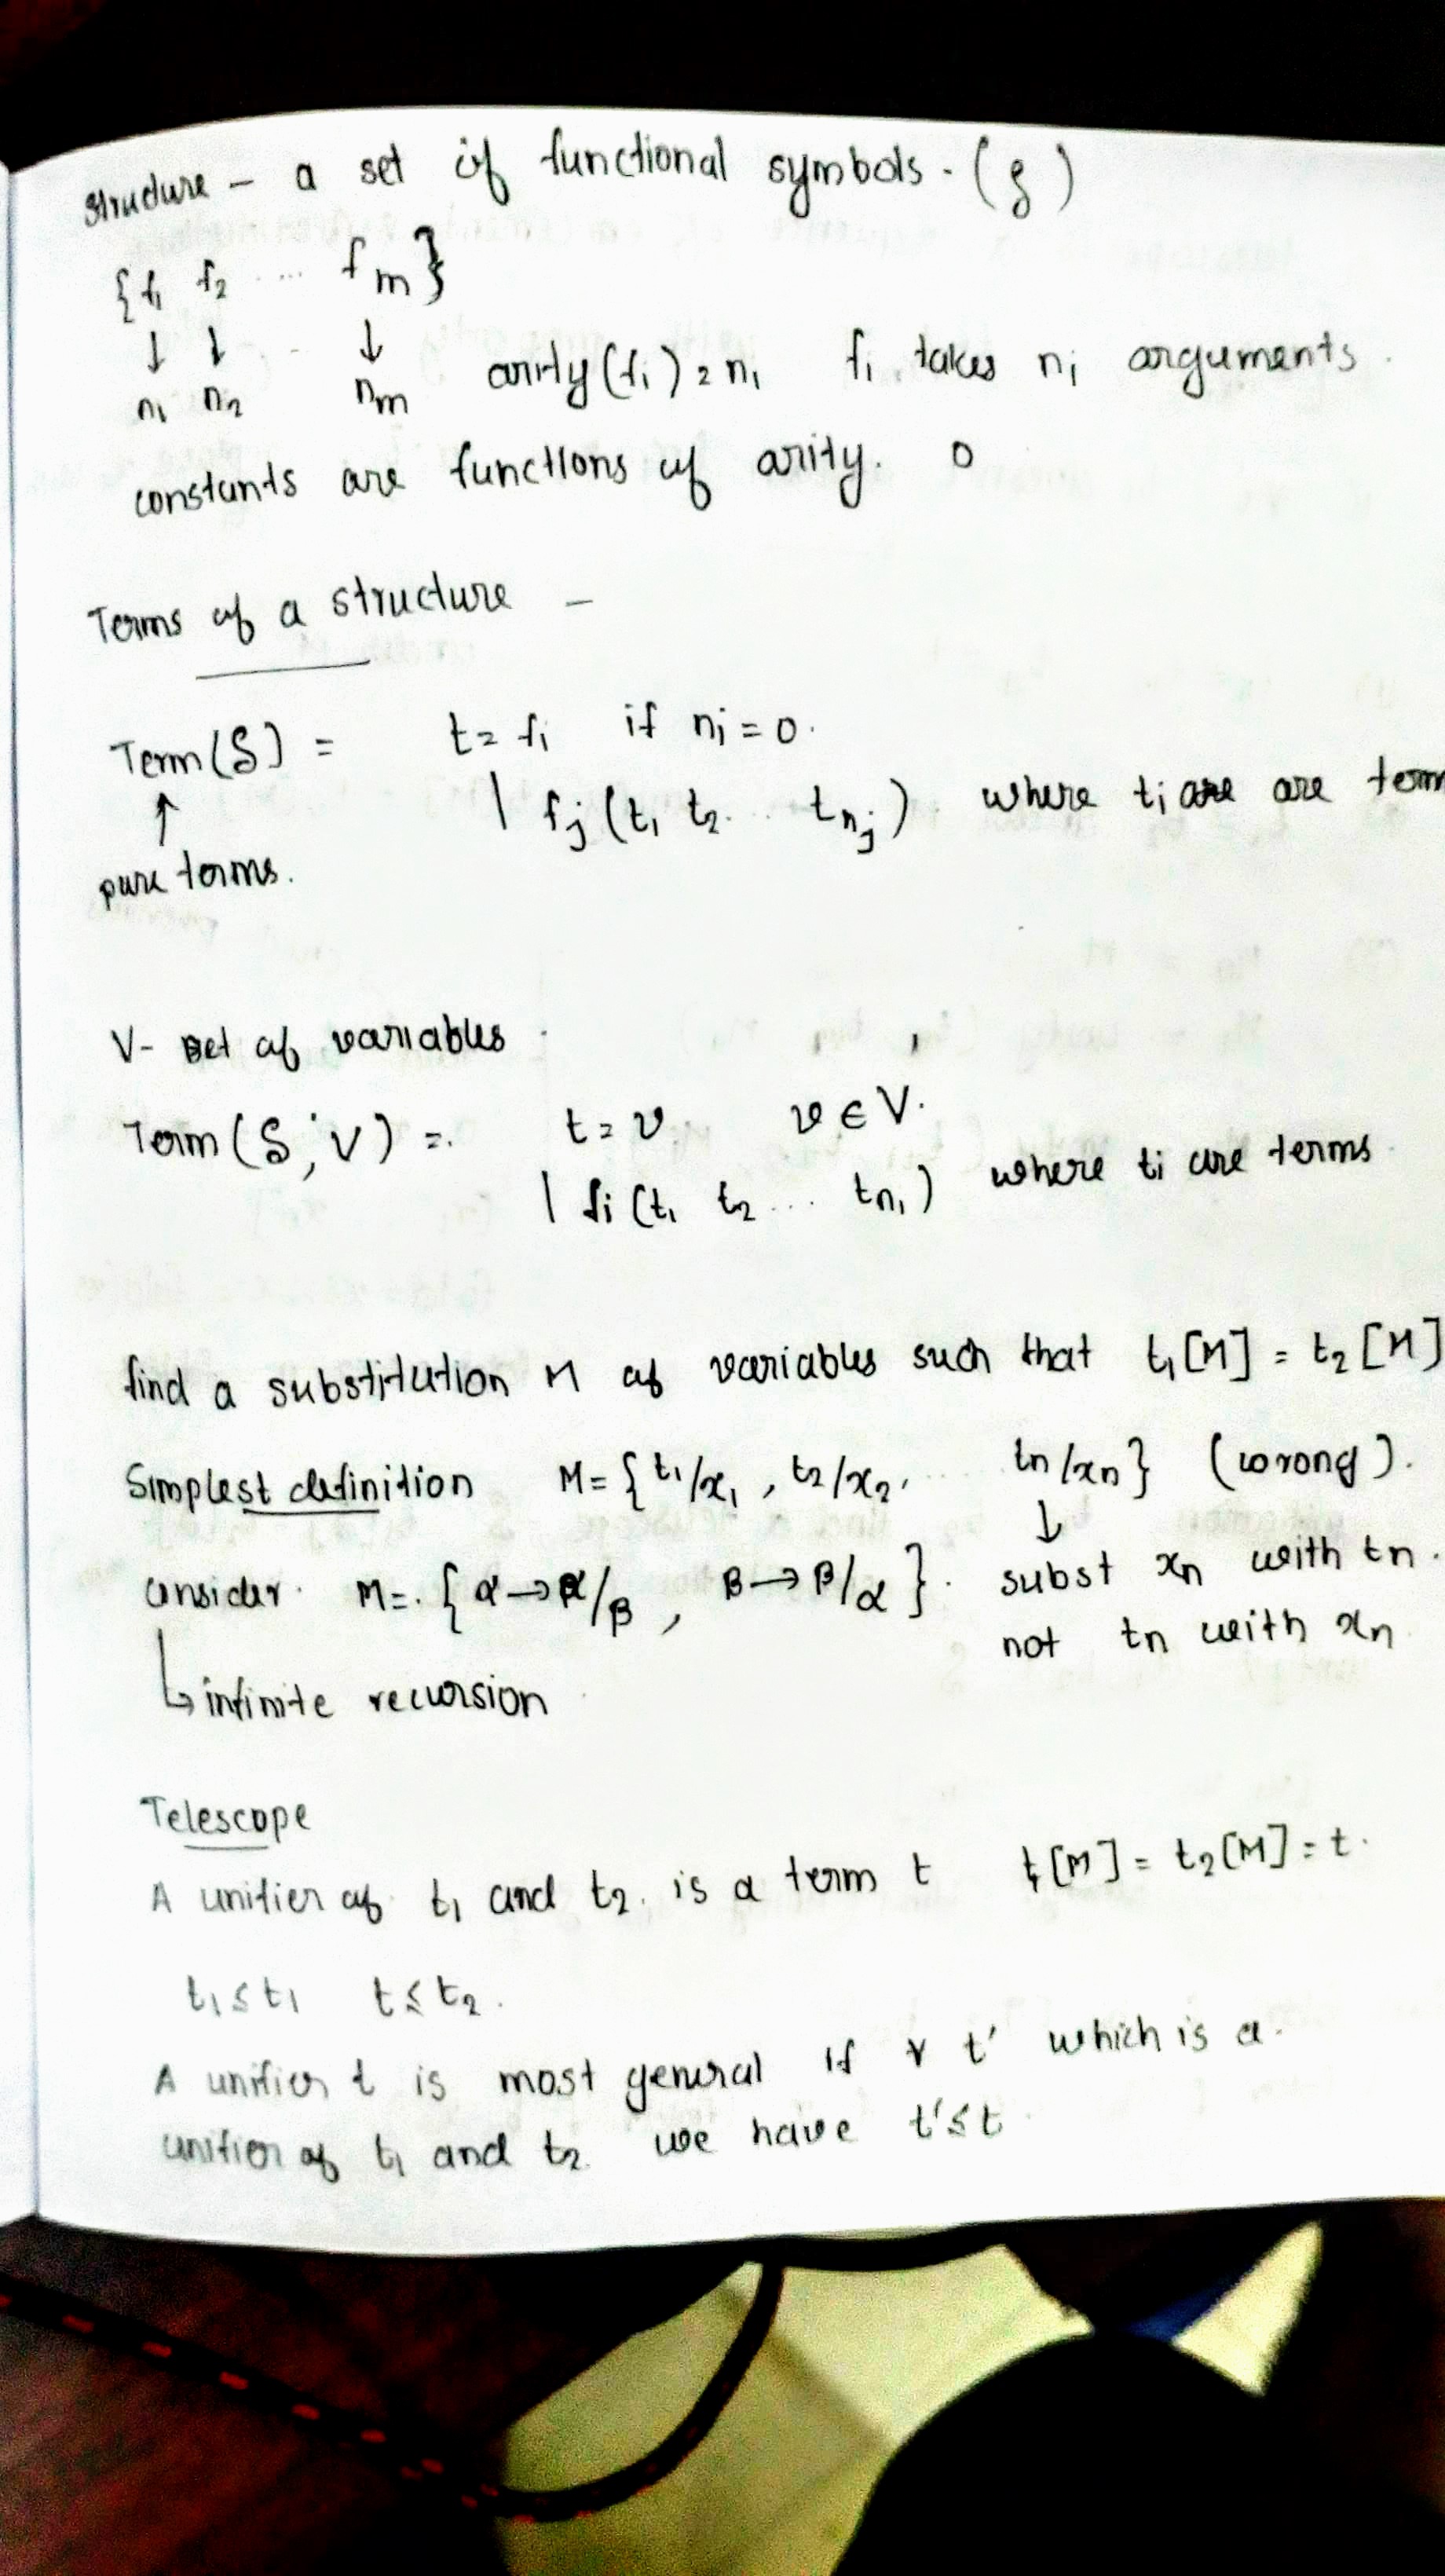 structure - a set of functional symbols - (S)
{f₁ f₂ ... fm}
↓ ↓ - ↓
n₁ n₂ nm arity(fi) = ni fi takes ni arguments.
constants are functions of arity. 0
Terms of a structure -
Term(S) = t = fi if ni = 0.
| fj (t₁ t₂ ... tnj) where ti are are term
↑
pure terms.
V - set of variables.
Term(S; V) = t = v v ∈ V.
| fi (t₁ t₂ ... tni) where ti are terms
find a substitution M of variables such that t₁[M] = t₂[M]
Simplest definition M = {t₁/x₁, t₂/x₂, ... tn/xn} (wrong).
↓
consider. M = {α → α/β, β → β/α}. subst xn with tn.
not tn with xn
↳ infinite recursion
Telescope
A unifier of t₁ and t₂. is a term t t₁[M] = t₂[M] = t.
t₁ ≤ t₁ t ≤ t₂.
A unifier t is most general if ∀ t' which is a.
unifier of t₁ and t₂ we have t' ≤ t